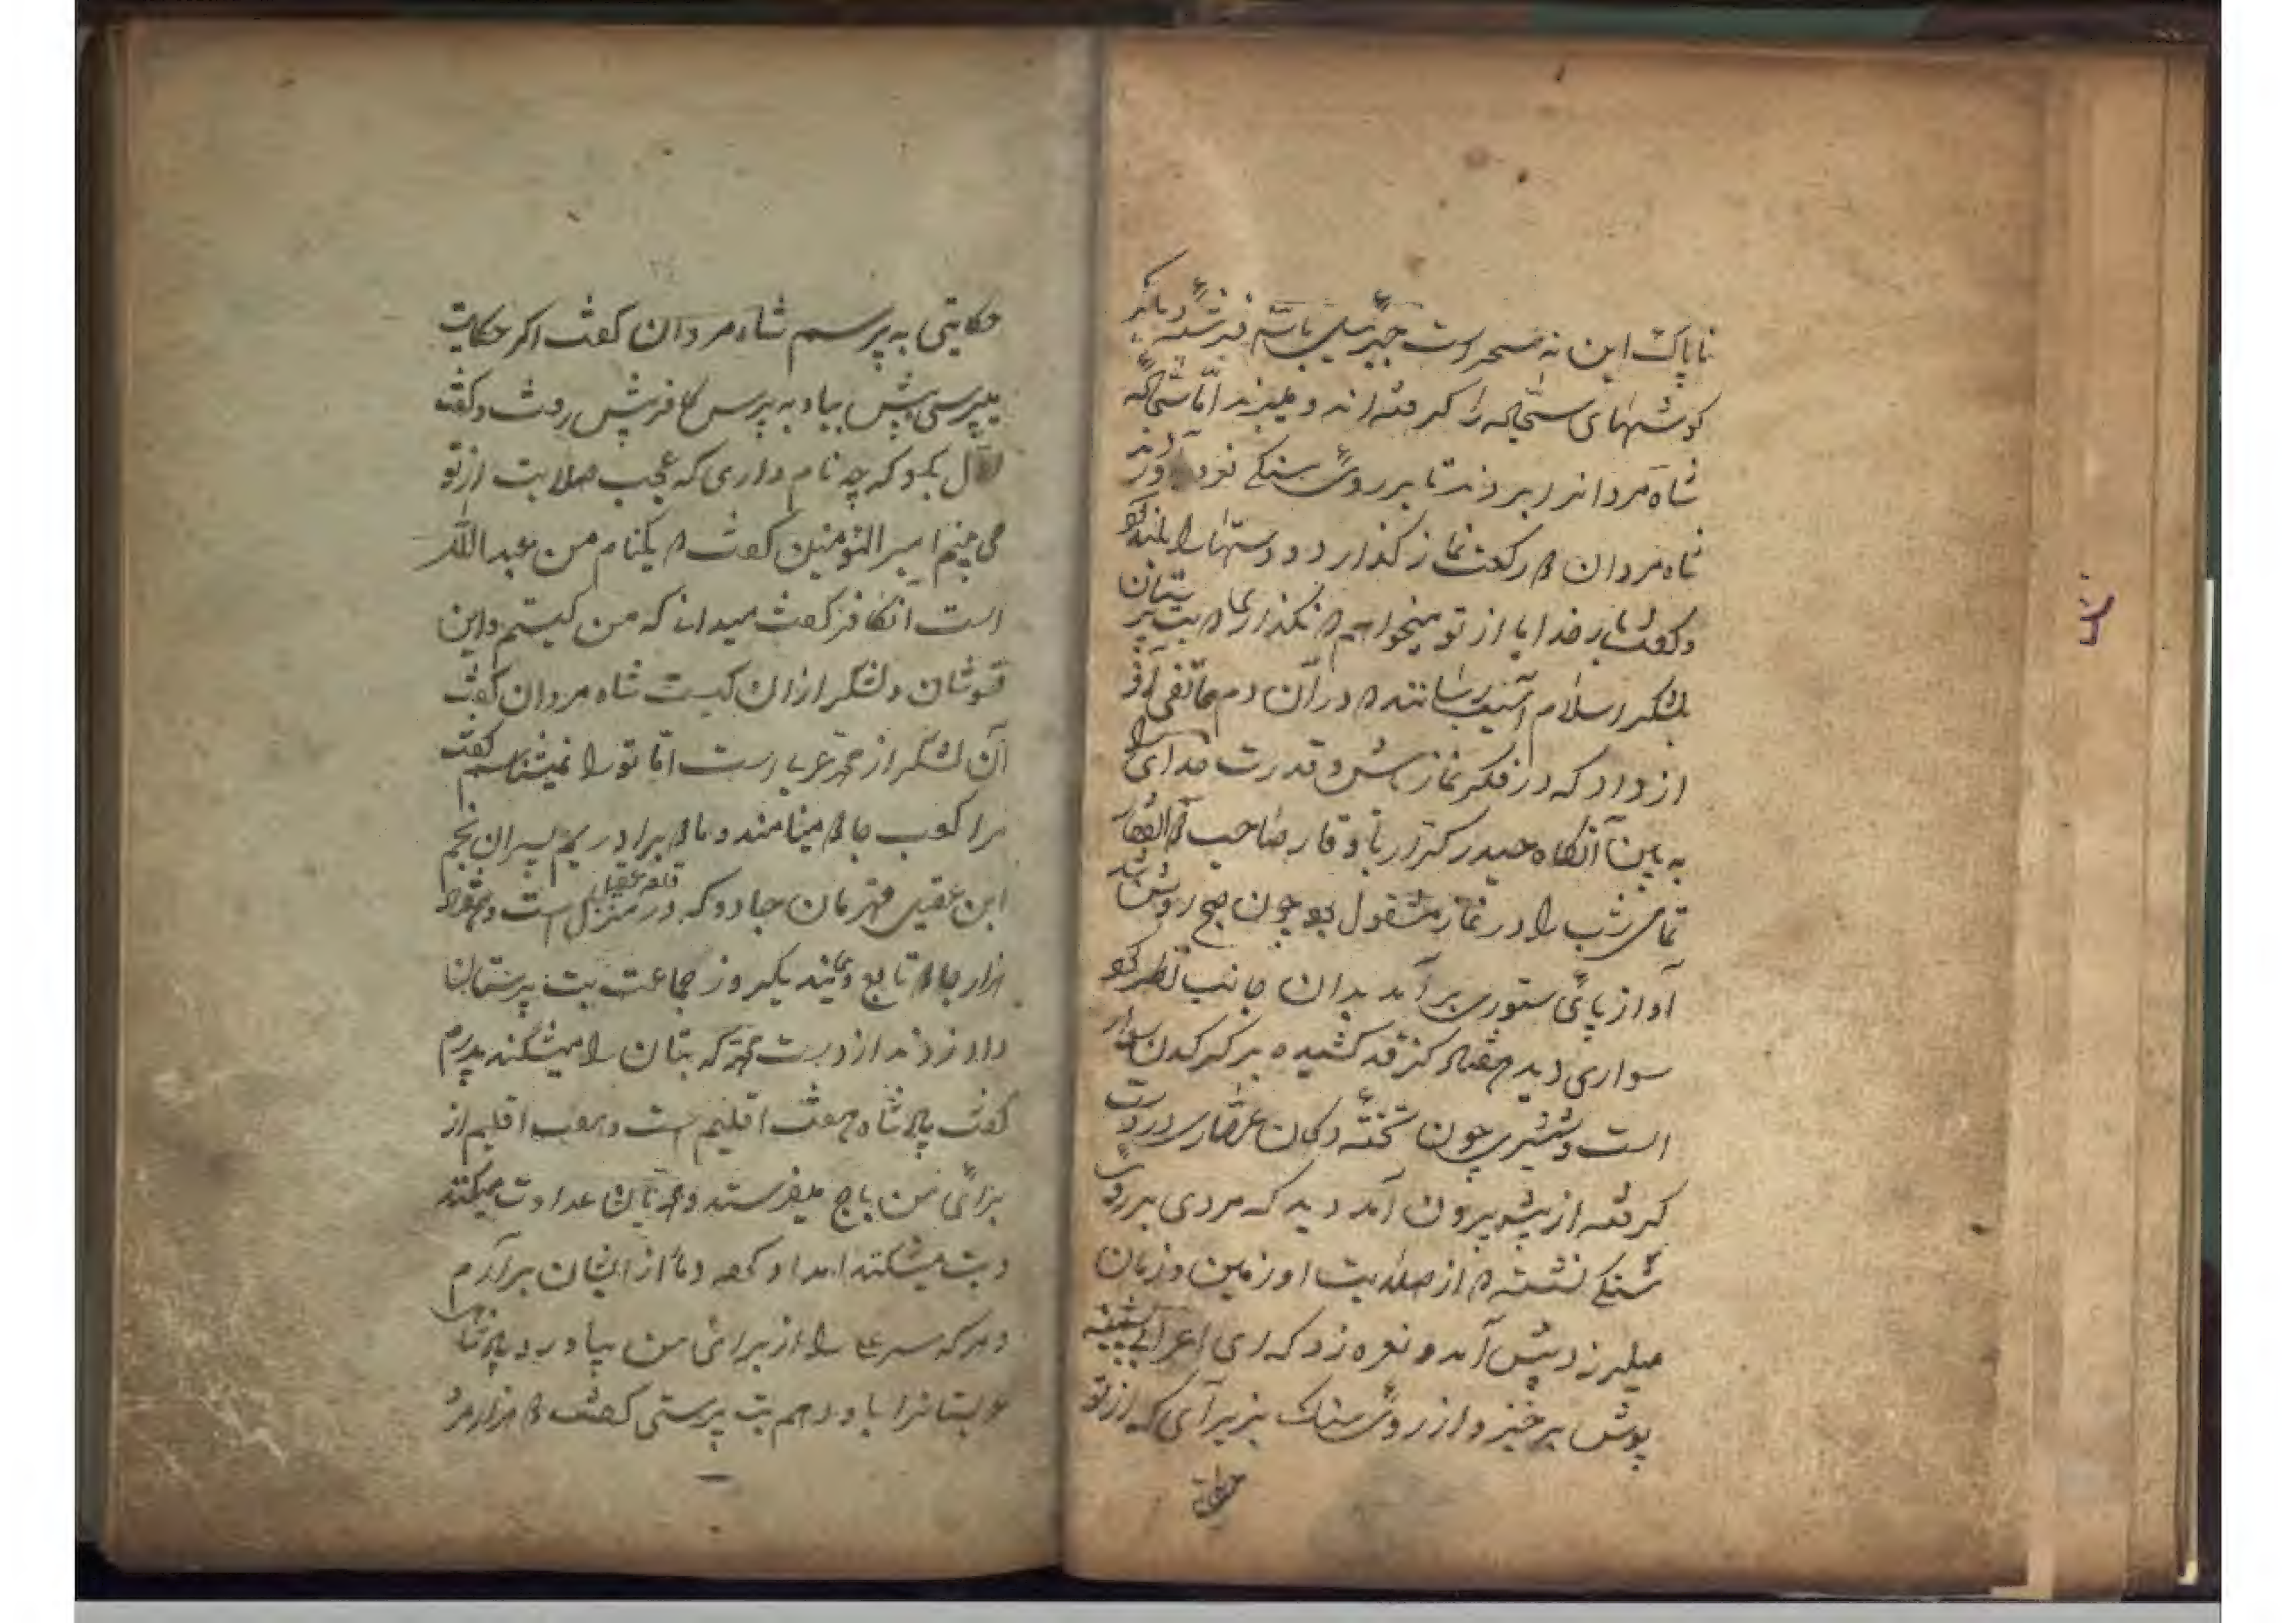 ناپاک این نه سحر است جبرئیل با سه فرشتهٔ دیگر
کوشهای سنجاله را کرفته اند و میبرند امّا سنجاله
شاه مردانرا بردند تا بر روی سنکی فرود آوردند
شاه مردان ۲ رکعت نماز کذارد و دستها را بلند کرد
و کفت بار خدایا از تو میخواهم ۲ نکذاری ۲ بت پرستان
بلشکر اسلام آسیب رسانند ۲ در آن دم هاتفی آواز
از داد که در فکر نماز باش و قدرت خدای را
به بین آنکاه حیدر کرّار با وقار صاحب ذوالفقار
تمامی شب را در نماز مشقول بود چون صبح روشن شد
آواز پای ستوری بر آمد بدان جانب نظر کرد
سواری دید هفتاد کز قد کشیده بر کرکدن سوار
است و شمشیری چون تختهٔ دکان عصاری در دست
کرفته از پیشه بیرون آمد دید که مردی بر روی
سنکی نشسته ۲ از صلابت او زمین و زمان
میلرزد پیش آمد و نعره زد که ای اعرابی پشمینه
پوش برخیز و از روی سنک بزیر آی که از تو
حکایتی
حکایتی به پرسم شاه مردان کفت اکر حکایت
میپرسی پیش بیا و به پرس کافر پیش رفت و کفت
اوّل بکو که چه نام داری که عجب صلابت از تو
می بینم امیر المؤمنین کفت ۲ یکنام من عبدالله
است آنکافر کفت میدانی که من کیستم و این
قوشان و لشکر از ان کیست شاه مردان کفت
آن لشکر از محمّد عربی است امّا تو را نمیشناسم کفت
مرا کوب جادو مینامند و ما ۲ برادریم پسران نجم
ابن عقیل قهرمان جادو که در منزل قلعه عقیل است و هفتاد
هزار جادو تابع ویند یکروز جماعت بت پرستان
داد زدند از دست محمّد که بتان را میشکند پدرم
کفت پادشاه هفت اقلیم است و هفت اقلیم از
برای من باج میفرستد و محمّد با من عداوت میکند
و بت میشکند امداد کنید دمار از ایشان برآرم
و هر که سر علی را از برای من بیاورد پادشاهی
عربستانرا باو دهم بت پرستی کفت ۲ هزار مرد